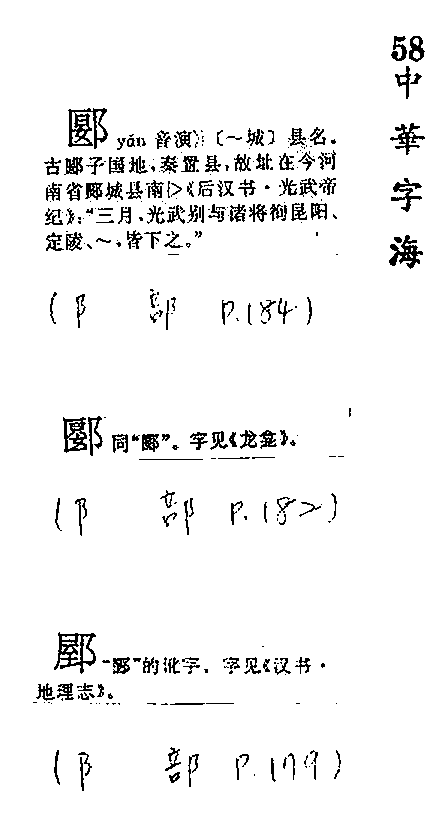 58
中華字海
郾 yǎn 音演〔～城〕县名。
古郾子国地，秦置县，故址在今河
南省郾城县南▷《后汉书·光武帝
纪》：“三月，光武别与诸将徇昆阳、
定陵、～，皆下之。”
(阝 部 P.184)
同“郾”。字见《龙龛》。
(阝 部 P.182)
“郾”的讹字。字见《汉书·
地理志》。
(阝 部 P.179)